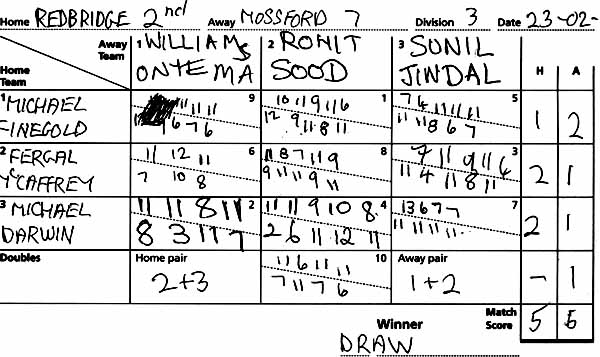 Home REDBRIDGE 2nd Away MOSSFORD 7 Division 3 Date 23-02-
Away Team 1 WILLIAMS ONYEMA 2 ROHIT SOOD 3 SUNIL JINDAL H A
Home Team
1 MICHAEL FINEGOLD 9 1 5 1 2
10 11 9 11 6
12 9 11 8 11
7 4 11 11 11
11 11 8 6 7
2 FERGAL McCAFFREY 6 8 3 2 1
11 12 11
7 10 8
11 8 7 11 9
9 11 11 9 11
7 11 9 11 6
11 4 11 8 11
3 MICHAEL DARWIN 2 4 7 2 1
11 11 8 11
8 3 11 7
11 11 9 10 8
2 6 11 12 11
13 6 7 7
11 11 11 11
Doubles Home pair 2+3 10 Away pair 1+2 - 1
11 6 11 11
7 11 7 6
Winner DRAW Match Score 5 5